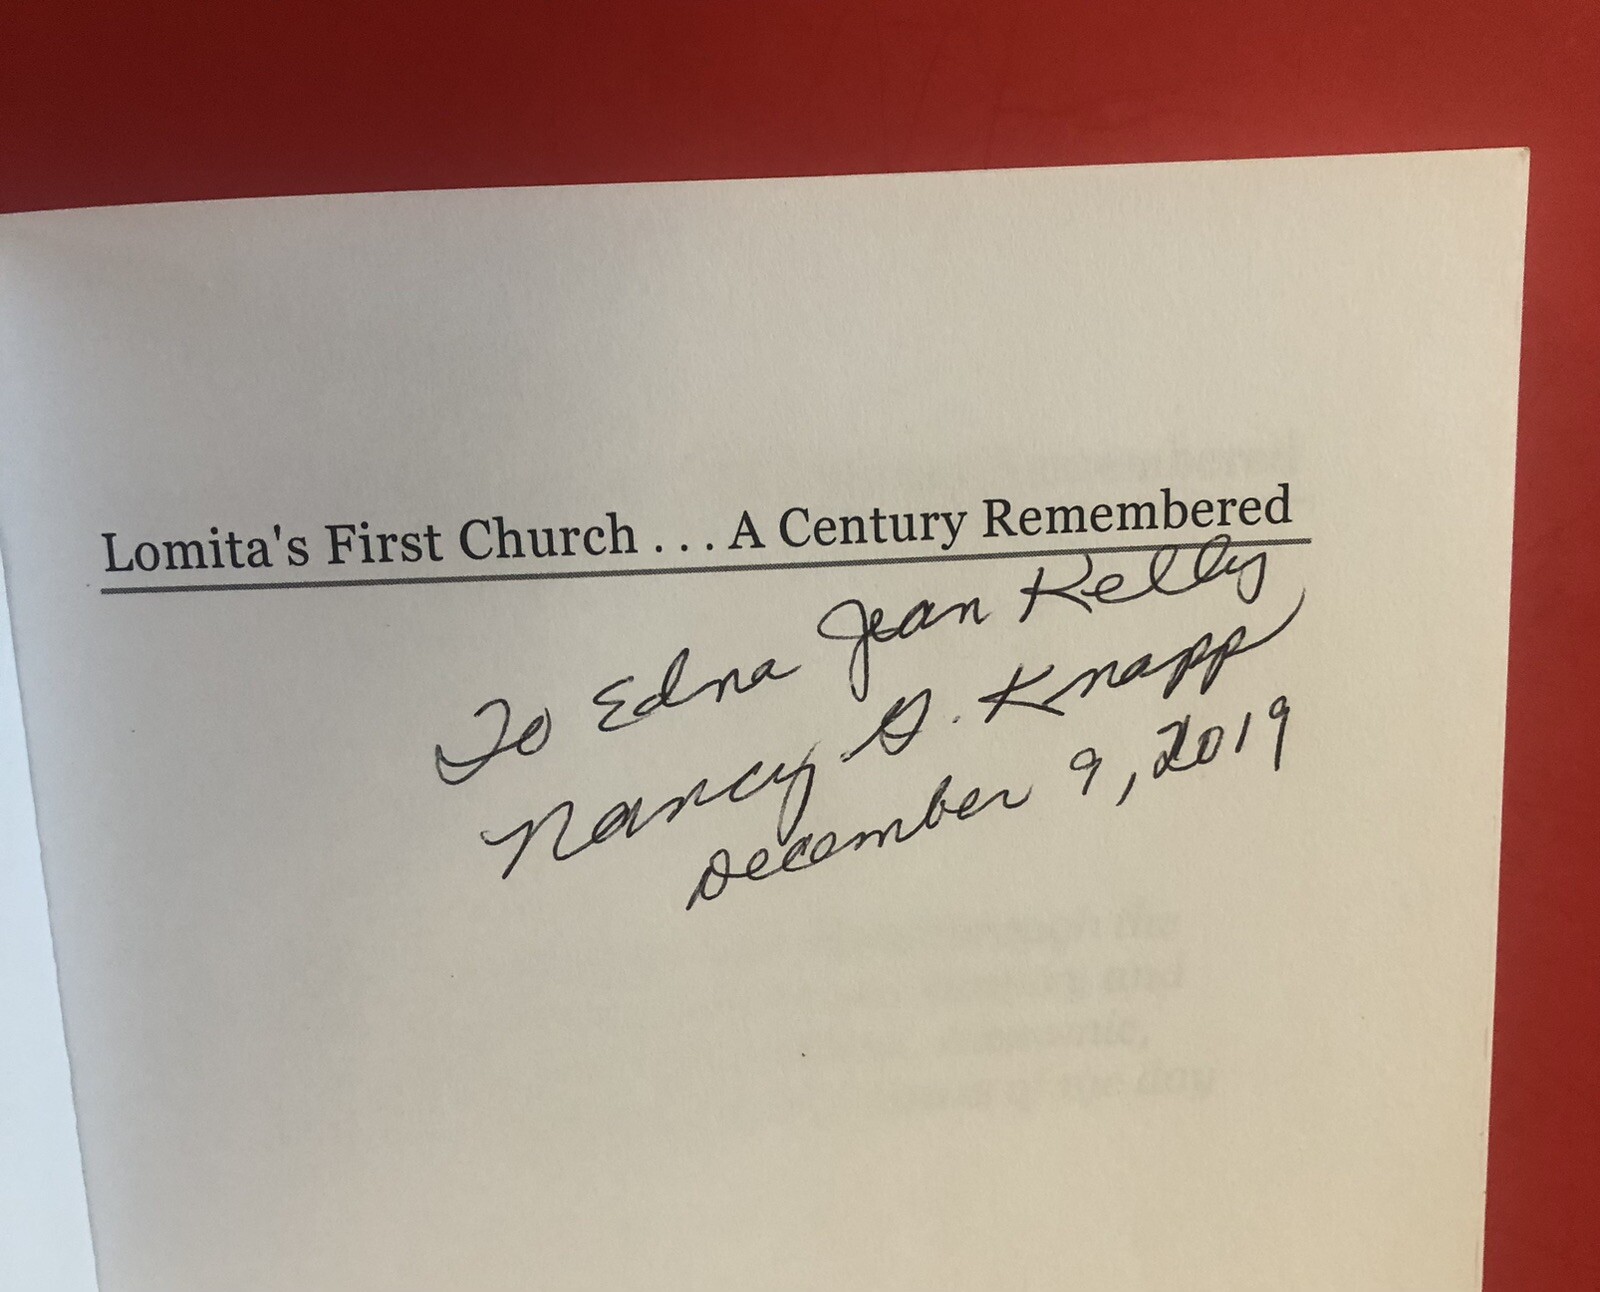 Lomita's First Church . . . A Century Remembered
To Edna Jean Kelly
Nancy G. Knapp
December 9, 2019